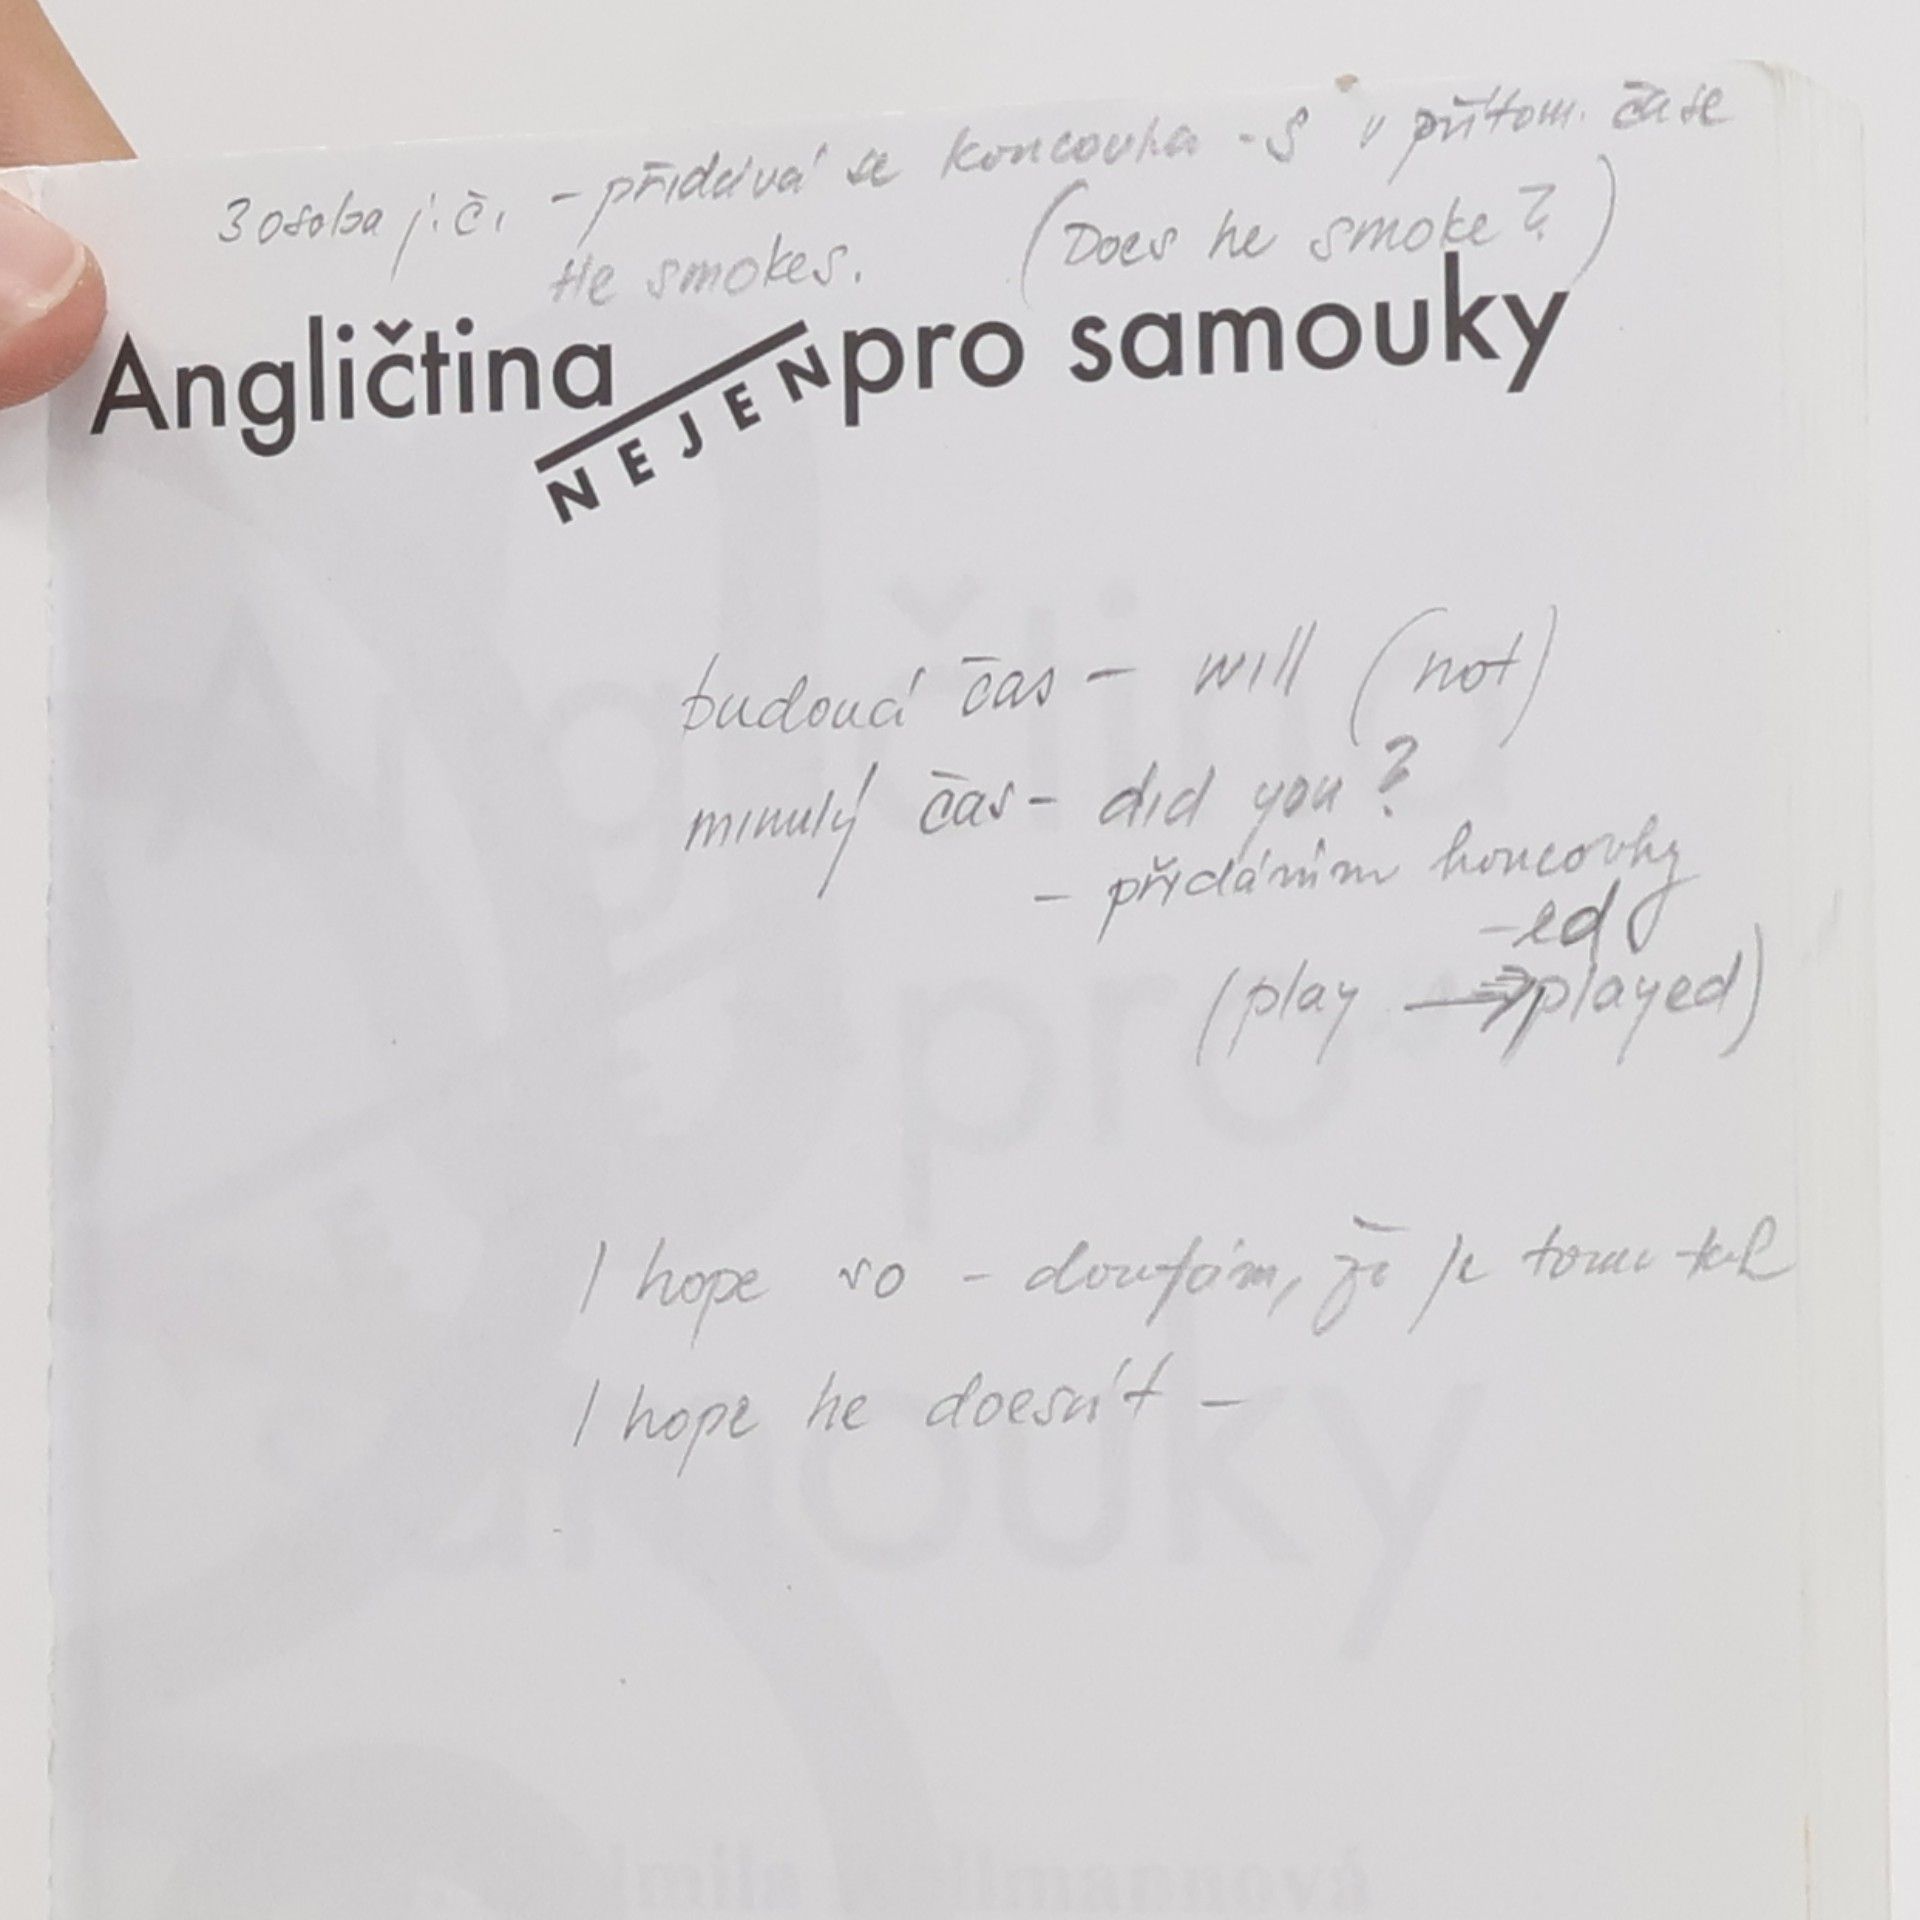 3 osoba j. č. - přidává se koncovka -s v přítom. čase
He smokes. (Does he smoke?)
Angličtina NEJEN pro samouky
budoucí čas - will (not)
minulý čas - did you?
- přidáním koncovky
-ed
(play → played)
I hope so - doufám, že je tomu tak
I hope he doesn't -